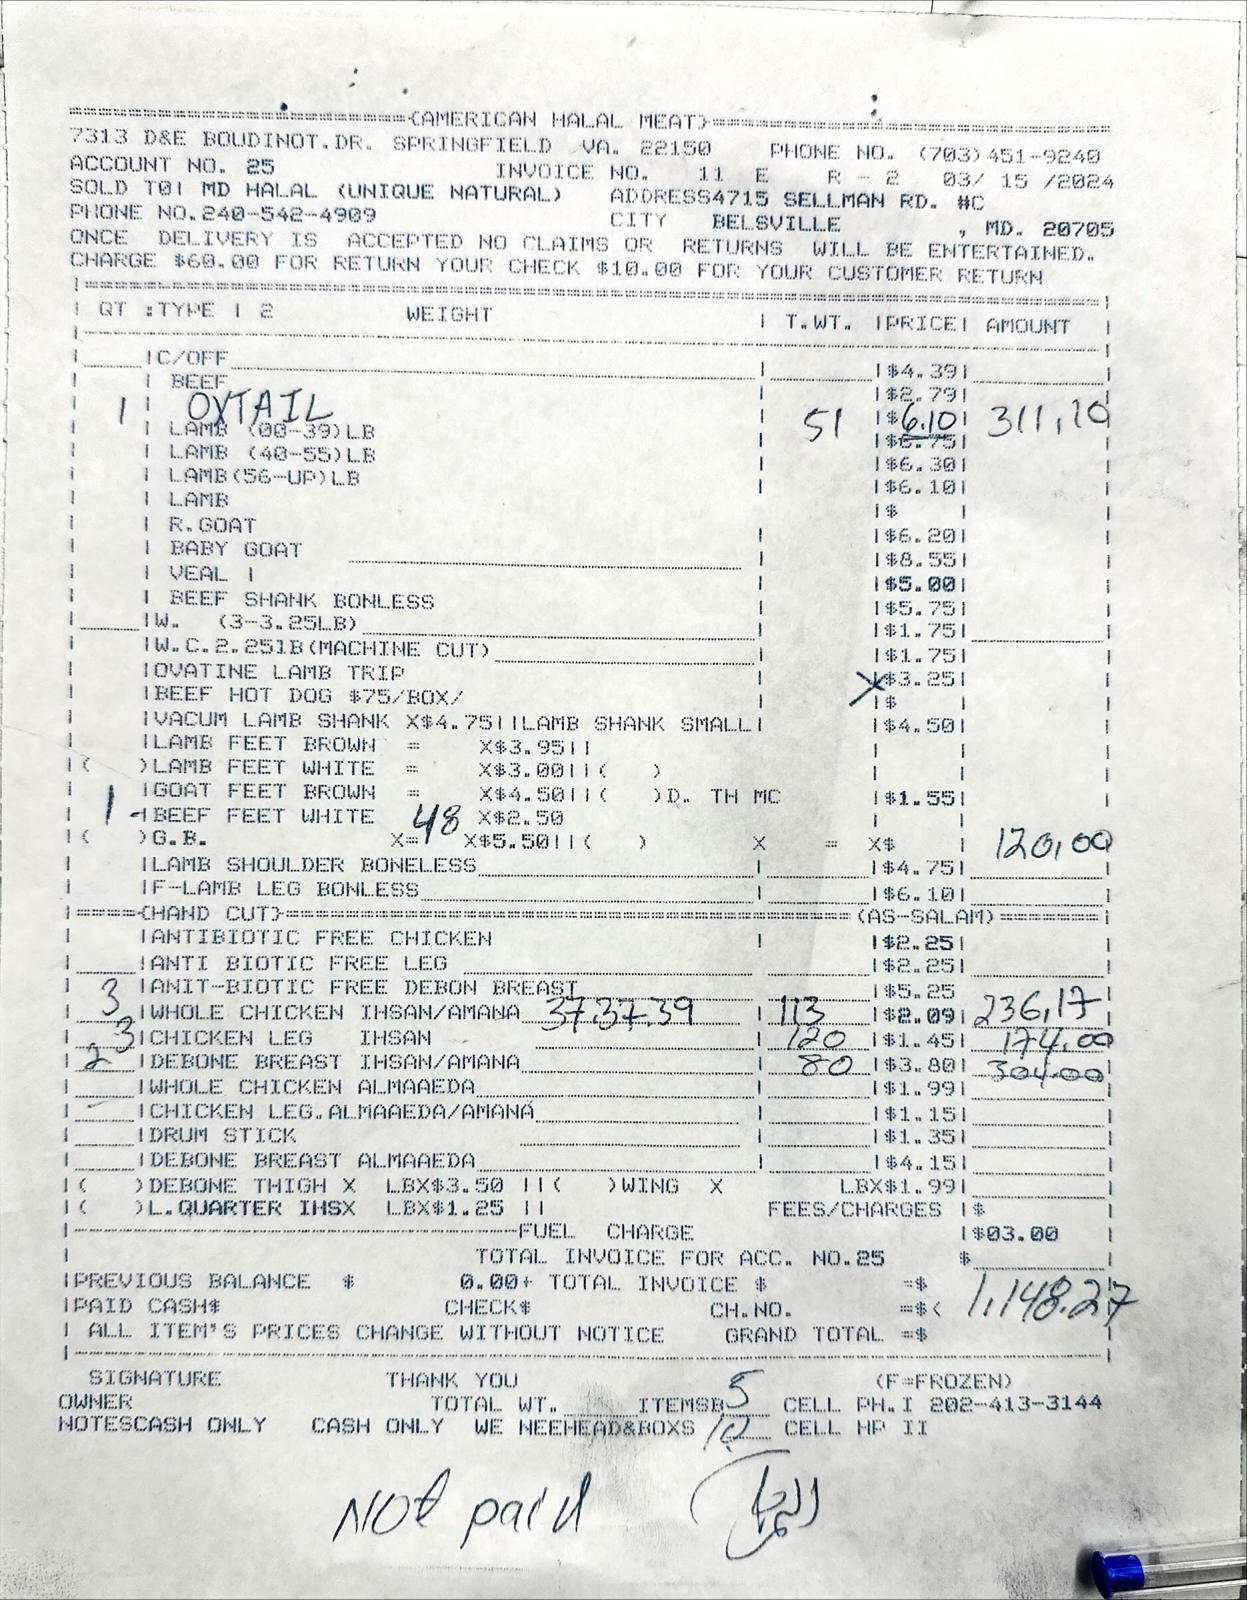 ====================={AMERICAN HALAL MEAT}=====================
7313 D&E BOUDINOT.DR. SPRINGFIELD VA. 22150 PHONE NO. (703)451-9240
ACCOUNT NO. 25 INVOICE NO. 11 E R - 2 03/ 15 /2024
SOLD TO| MD HALAL (UNIQUE NATURAL) ADDRESS4715 SELLMAN RD. #C
PHONE NO.240-542-4909 CITY BELSVILLE , MD. 20705
ONCE DELIVERY IS ACCEPTED NO CLAIMS OR RETURNS WILL BE ENTERTAINED.
CHARGE $60.00 FOR RETURN YOUR CHECK $10.00 FOR YOUR CUSTOMER RETURN
| QT :TYPE | 2 WEIGHT | T.WT. |PRICE| AMOUNT |
|C/OFF |$4.39|
| BEEF |$2.79|
1 | OXTAIL 51 |$6.10| 311,10
| LAMB (00-39)LB |$6.75|
| LAMB (40-55)LB |$6.30|
| LAMB(56-UP)LB |$6.10|
| LAMB |$ |
| R.GOAT |$6.20|
| BABY GOAT |$8.55|
| VEAL | |$5.00|
| BEEF SHANK BONLESS |$5.75|
|W. (3-3.25LB) |$1.75|
|W.C.2.25lB(MACHINE CUT) |$1.75|
|OVATINE LAMB TRIP X |$3.25|
|BEEF HOT DOG $75/BOX/ |$ |
|VACUM LAMB SHANK X$4.75||LAMB SHANK SMALL| |$4.50|
|LAMB FEET BROWN = X$3.95||
|( )LAMB FEET WHITE = X$3.00||( )
|GOAT FEET BROWN = X$4.50||( )D. TH MC |$1.55|
1 -|BEEF FEET WHITE 48 X$2.50
|( )G.B. X= X$5.50||( ) X = X$ | 120,00
|LAMB SHOULDER BONELESS |$4.75|
|F-LAMB LEG BONLESS |$6.10|
|====={HAND CUT}=====================(AS-SALAM)=======|
|ANTIBIOTIC FREE CHICKEN |$2.25|
|ANTI BIOTIC FREE LEG |$2.25|
|ANIT-BIOTIC FREE DEBON BREAST |$5.25
3 |WHOLE CHICKEN IHSAN/AMANA 37.37.39 113 |$2.09| 236,17
3 |CHICKEN LEG IHSAN 120 |$1.45| 174.00
2 |DEBONE BREAST IHSAN/AMANA 80 |$3.80| 304.00
|WHOLE CHICKEN ALMAAEDA |$1.99|
|CHICKEN LEG.ALMAAEDA/AMANA |$1.15|
|DRUM STICK |$1.35|
|DEBONE BREAST ALMAAEDA |$4.15|
|( )DEBONE THIGH X LBX$3.50 ||( )WING X LBX$1.99|
|( )L.QUARTER IHSX LBX$1.25 || FEES/CHARGES |$
FUEL CHARGE |$03.00
TOTAL INVOICE FOR ACC. NO.25 $
|PREVIOUS BALANCE $ 0.00+ TOTAL INVOICE $ =$
|PAID CASH$ CHECK$ CH.NO. =$< 1,148.27
| ALL ITEM'S PRICES CHANGE WITHOUT NOTICE GRAND TOTAL =$
SIGNATURE THANK YOU (F=FROZEN)
OWNER TOTAL WT. ITEMSB 5 CELL PH.I 202-413-3144
NOTESCASH ONLY CASH ONLY WE NEEHEAD&BOXS 10 CELL HP II
NOt paid